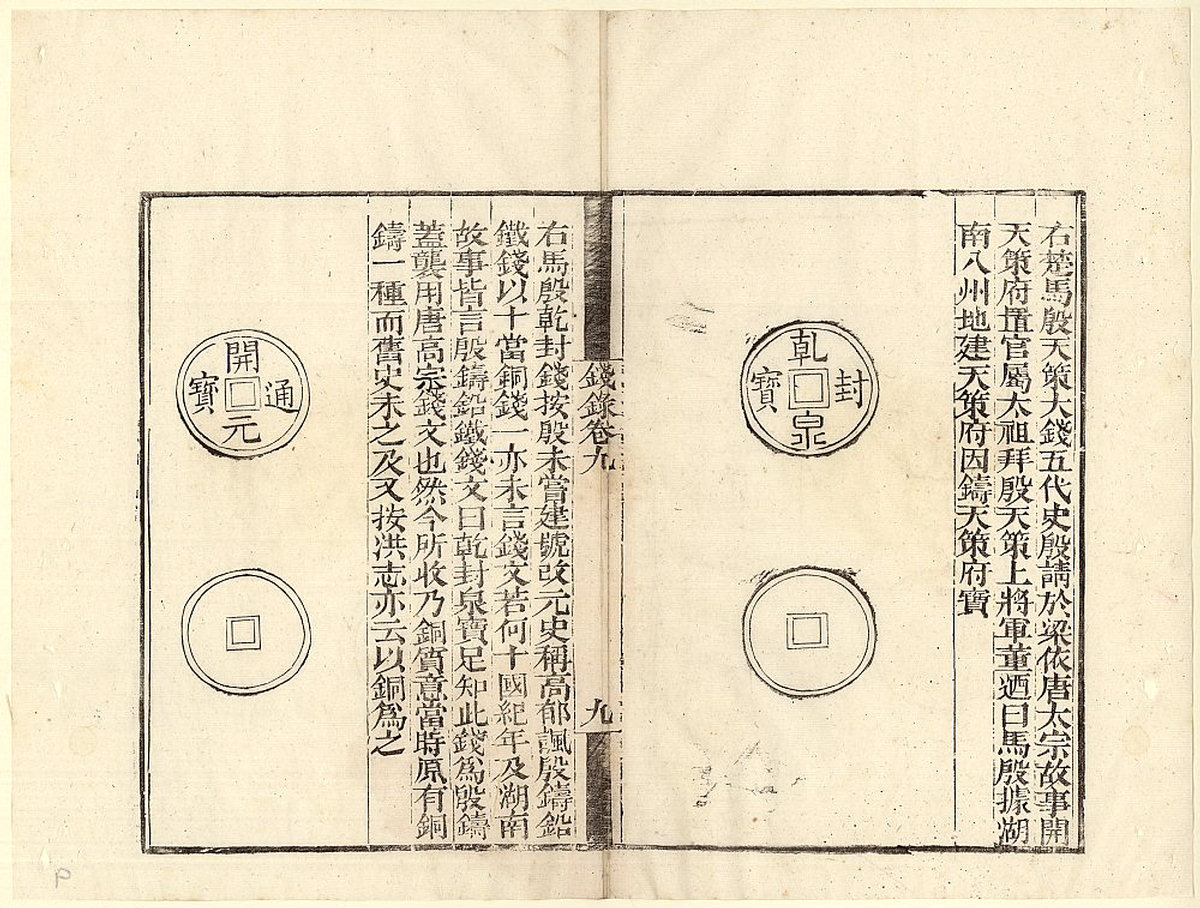 右楚馬殷天策大錢五代史殷請於梁依唐太宗故事開
天策府置官屬太祖拜殷天策上將軍董逌曰馬殷據湖
南八州地建天策府因鑄天策府寶
乾封泉寶
錢錄卷九
九
右馬殷乾封錢按殷未嘗建號改元史稱高郁諷殷鑄鉛
鐵錢以十當銅錢一亦未言錢文若何十國紀年及湖南
故事皆言殷鑄鉛鐵錢文曰乾封泉寶足知此錢爲殷鑄
蓋襲用唐高宗錢文也然今所收乃銅質意當時原有銅
鑄一種而舊史未之及又按洪志亦云以銅爲之
開元通寶